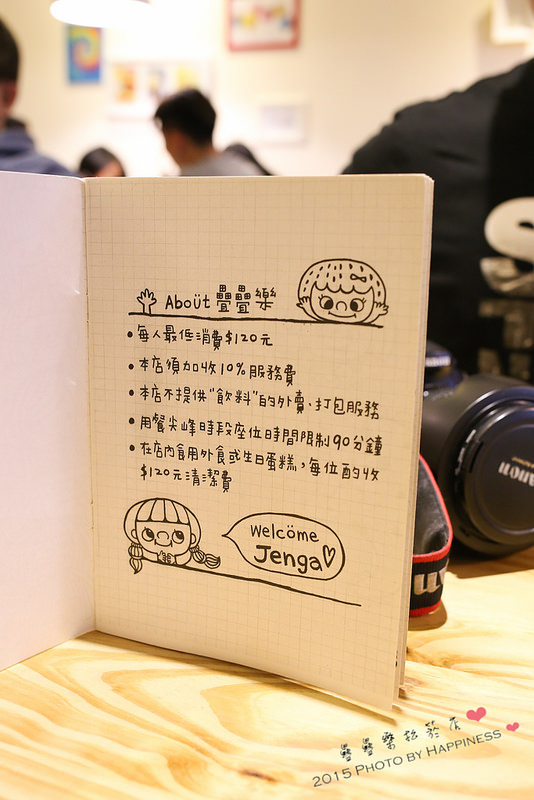 About 疊疊樂
•每人最低消費$120元
•本店須加收10%服務費
•本店不提供"飲料"的外賣、打包服務
•用餐尖峰時段座位時間限制90分鐘
•在店內食用外食或生日蛋糕,每位酌收
$120元清潔費
Welcöme
Jenga♡
CANON
疊疊樂松菸店
2015 PHOTO BY HAPPINESS